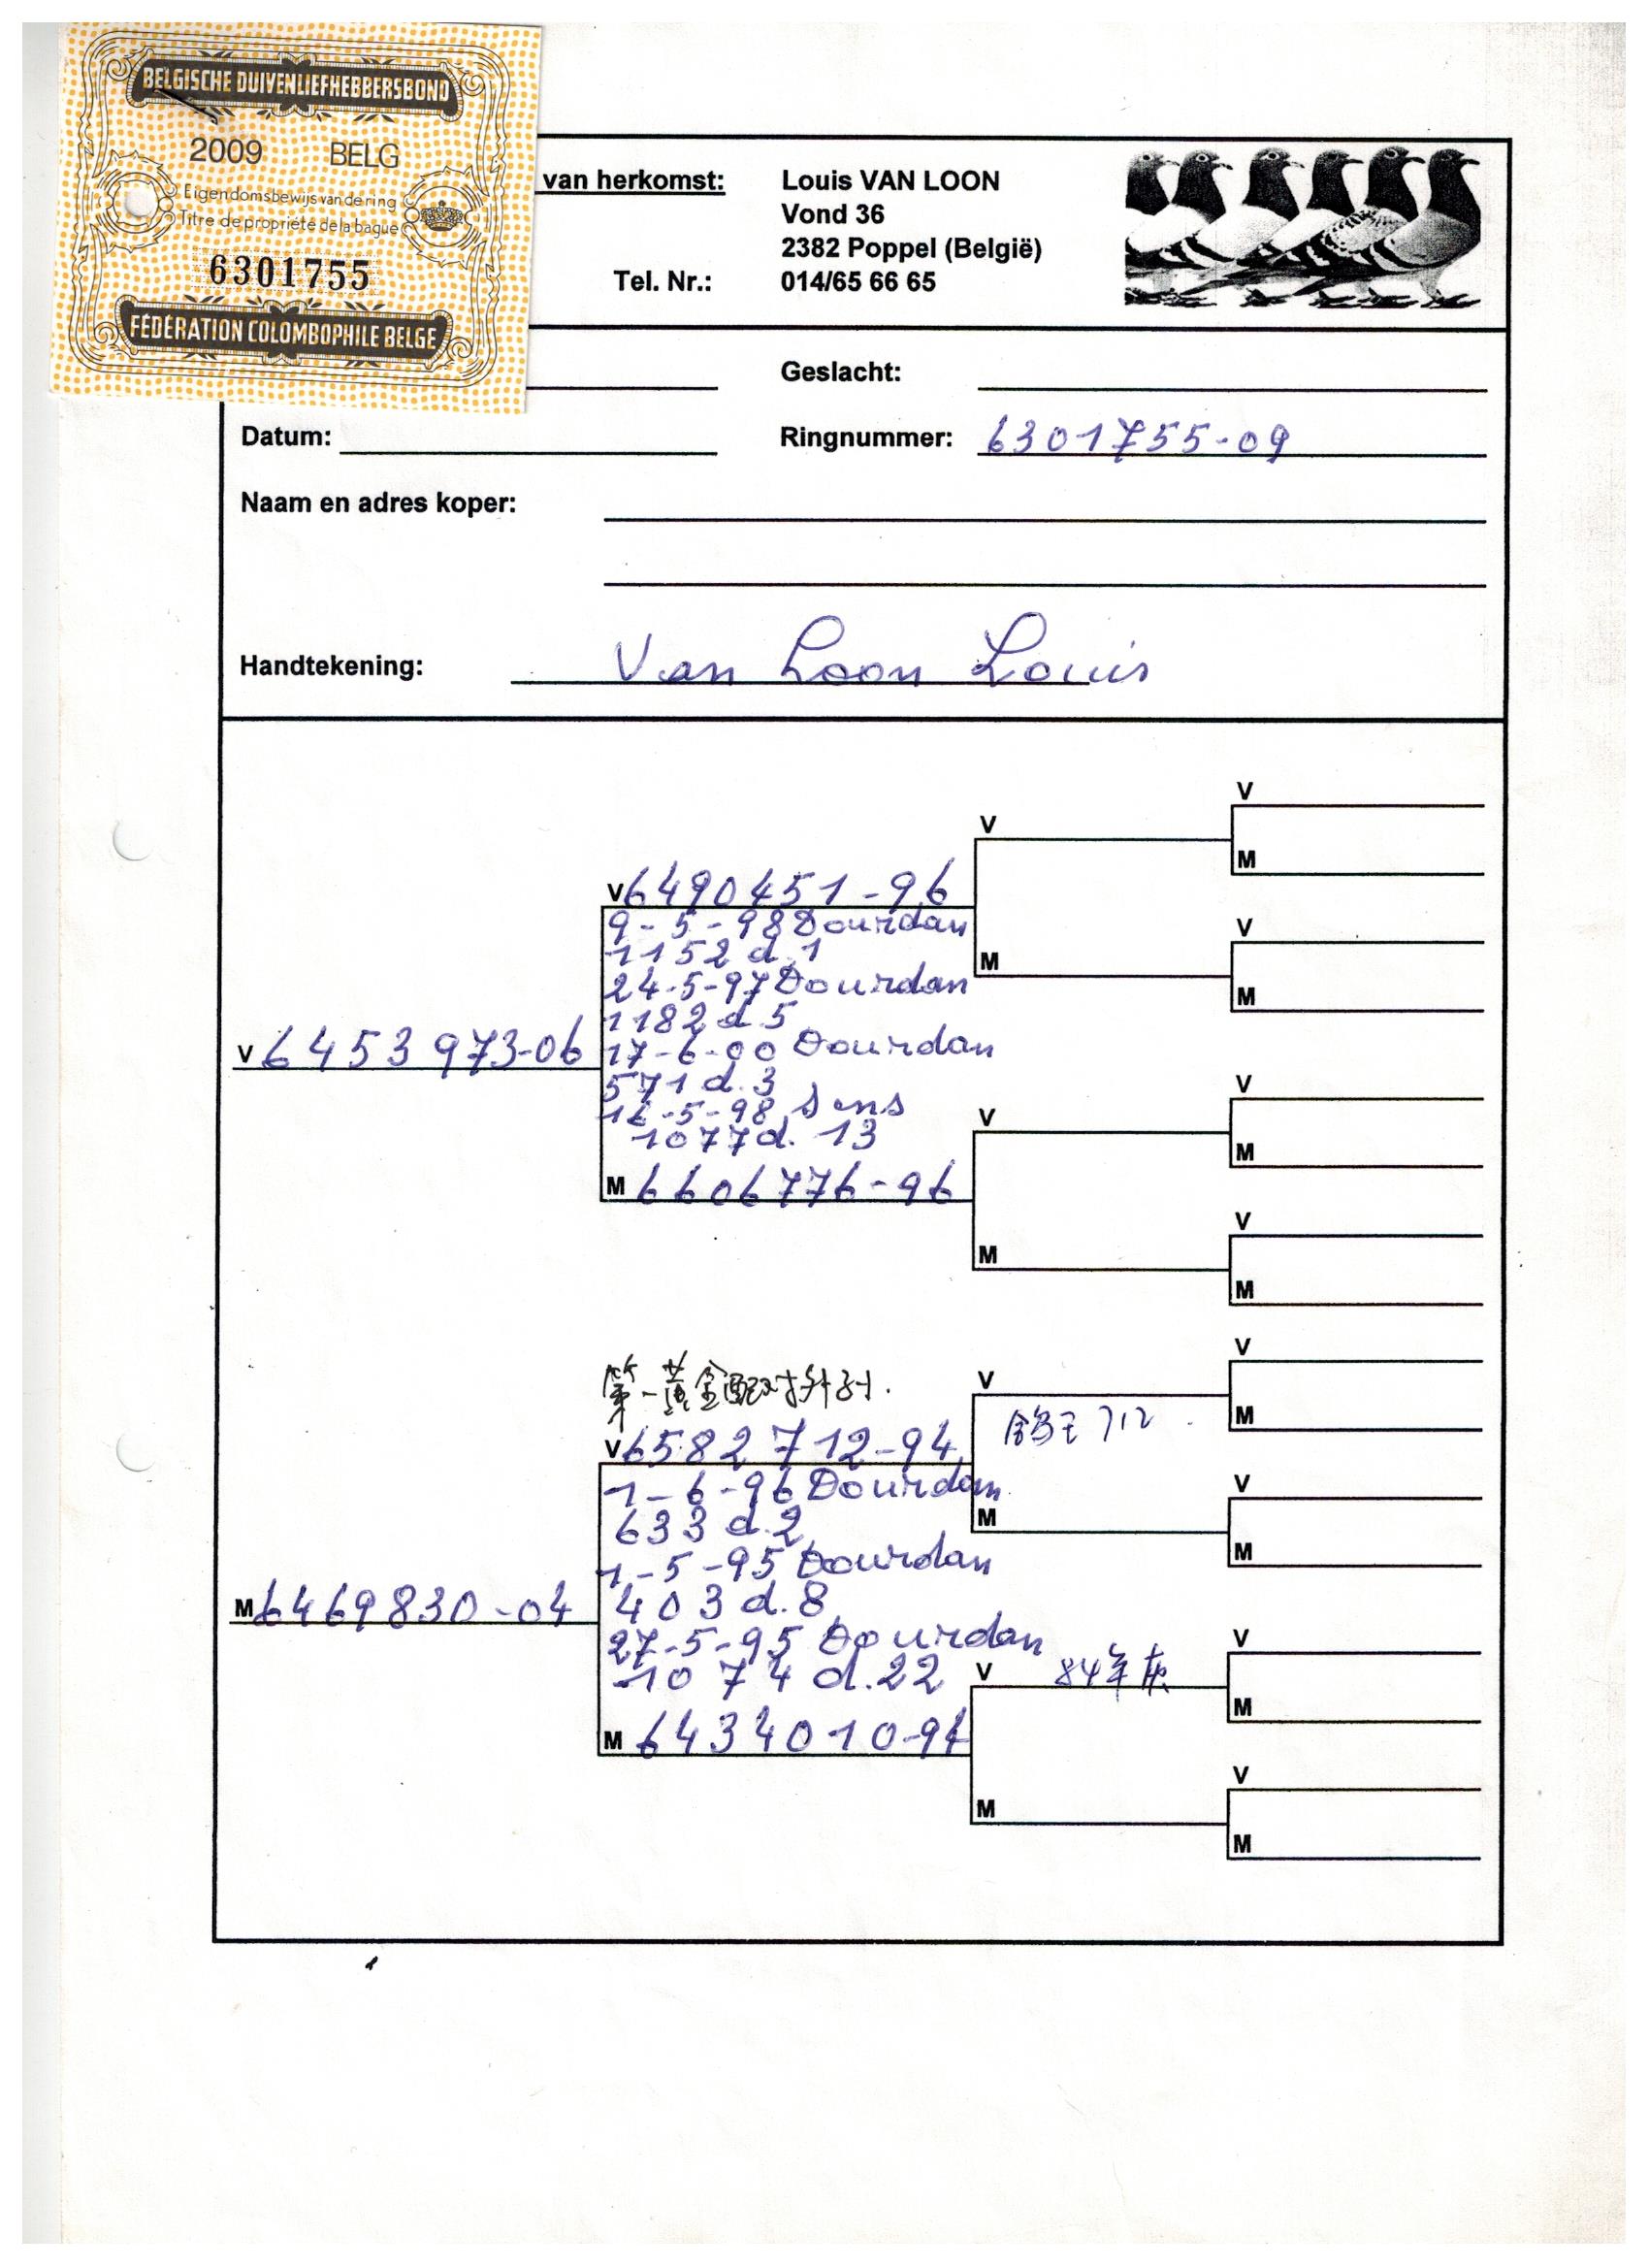 BELGISCHE DUIVENLIEFHEBBERSBOND
2009 BELG
Eigendomsbewijs van de ring
Titre de propriété de la bague
6301755
FÉDÉRATION COLOMBOPHILE BELGE
van herkomst: Louis VAN LOON
Vond 36
2382 Poppel (België)
Tel. Nr.: 014/65 66 65
Geslacht:
Datum: Ringnummer: 6301755-09
Naam en adres koper:
Handtekening: Van Loon Louis
V
V
M
V 6490451-96
9-5-98 Dourdan
V
1152 d.1
M
24-5-97 Dourdan
M
1182 d.5
V 6453973-06
17-6-00 Dourdan
571 d.3
V
-5-98 Sens
V
1077 d. 13
M
M 6606776-96
V
M
M
V
第一黄金配对
V
鸽王 712
M
V 6582712-94
1-6-96 Dourdan
V
633 d.2
M
1-5-95 Dourdan
M
403 d.8
M 6469830-04
27-5-95 Dourdan
V
1074 d.22
V 84年灰
M
M 6434010-94
V
M
M